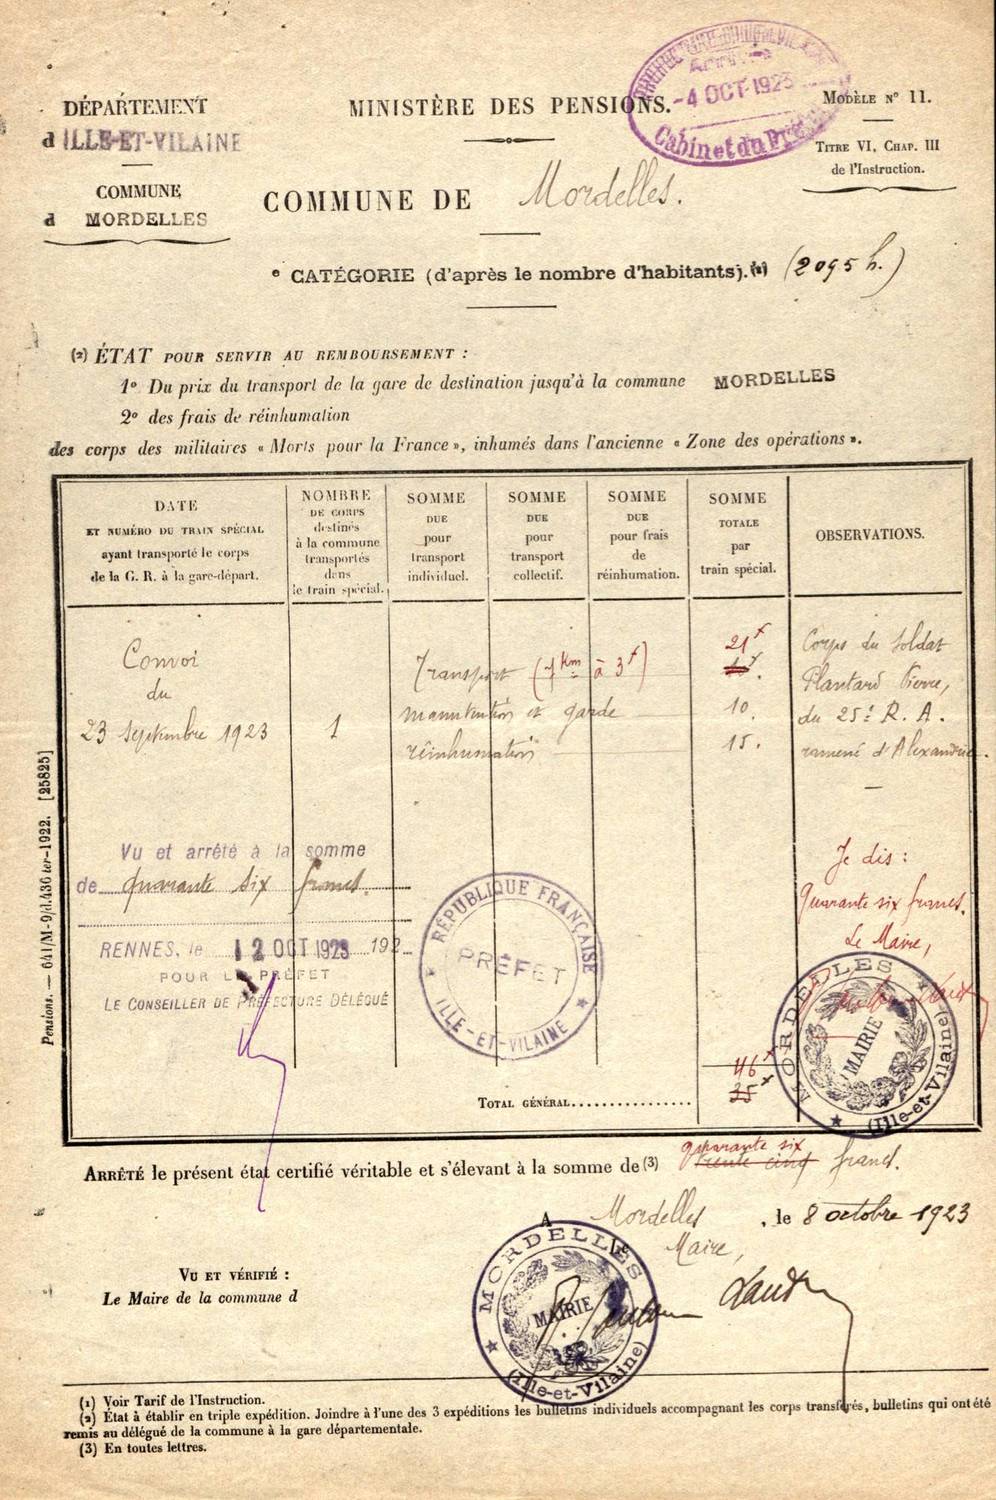 DÉPARTEMENT
d ILLE-ET-VILAINE
COMMUNE
d MORDELLES
MINISTÈRE DES PENSIONS.
COMMUNE DE Mordelles.
-4 OCT 1923
Cabinet du
MODÈLE N° 11.
TITRE VI, CHAP. III
de l'Instruction.
e CATÉGORIE (d'après le nombre d'habitants).(1) (2095 h.)
(2) ÉTAT POUR SERVIR AU REMBOURSEMENT :
1° Du prix du transport de la gare de destination jusqu'à la commune MORDELLES
2° des frais de réinhumation
des corps des militaires « Morts pour la France », inhumés dans l'ancienne « Zone des opérations ».
DATE
ET NUMÉRO DU TRAIN SPÉCIAL
ayant transporté le corps
de la G. R. à la gare-départ.
NOMBRE
DE CORPS
destinés
à la commune
transportés
dans
le train spécial.
SOMME
DUE
pour
transport
individuel.
SOMME
DUE
pour
transport
collectif.
SOMME
DUE
pour frais
de
réinhumation.
SOMME
TOTALE
par
train spécial.
OBSERVATIONS.
Convoi
du
23 septembre 1923
1
Transport (7 Km à 3f) 21f
manutention et garde 10.
réinhumation 15.
Corps du soldat
Plantard Pierre,
du 25e R. A.
ramené d'Alexandrie.
Vu et arrêté à la somme
de quarante six francs.
RENNES, le 12 OCT 1923 192
POUR LE PRÉFET
LE CONSEILLER DE PRÉFECTURE DÉLÉGUÉ
RÉPUBLIQUE FRANÇAISE
PRÉFET
ILLE-ET-VILAINE
Je dis :
Quarante six francs.
Le Maire,
MORDELLES
MAIRIE
(Ille-et-Vilaine)
46f
35f
TOTAL GÉNÉRAL
ARRÊTÉ le présent état certifié véritable et s'élevant à la somme de (3) quarante six
trente cinq francs.
A Mordelles, le 8 octobre 1923
Le Maire,
VU ET VÉRIFIÉ :
Le Maire de la commune d
MORDELLES
MAIRIE
(Ille-et-Vilaine)
(1) Voir Tarif de l'Instruction.
(2) État à établir en triple expédition. Joindre à l'une des 3 expéditions les bulletins individuels accompagnant les corps transférés, bulletins qui ont été
remis au délégué de la commune à la gare départementale.
(3) En toutes lettres.
Pensions. — 641/M-9/d.436 ter-1922. [25825]